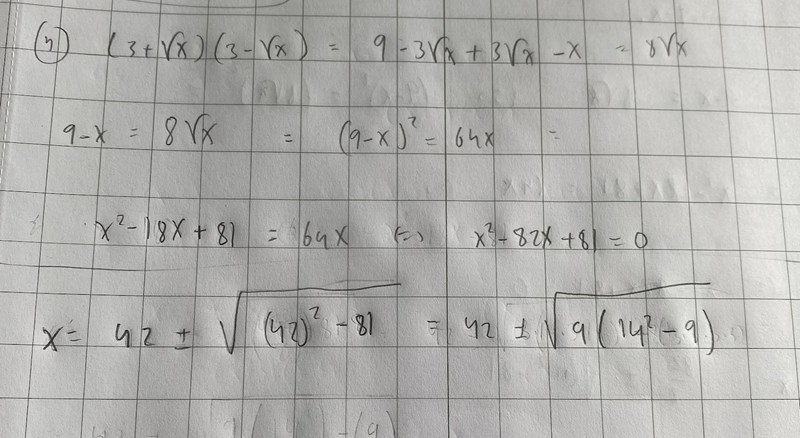 4) (3+√x)(3-√x) = 9 - 3√x + 3√x - x = 8√x
9-x = 8√x = (9-x)² = 64x =
x² - 18x + 81 = 64x (=) x² - 82x + 81 = 0
x = 42 ± √((42)² - 81) = 42 ± √(9(14² - 9))